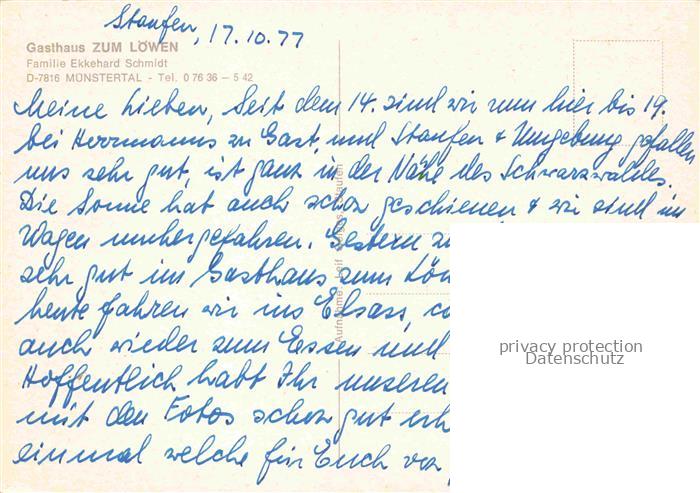 Staufen, 17.10.77
Gasthaus ZUM LÖWEN
Familie Ekkehard Schmidt
D-7816 MÜNSTERTAL - Tel. 0 76 36 – 5 42
Meine Lieben, Seit dem 14. sind wir nun hier bis 19.
bei Herrmanns zu Gast, und Staufen + Umgebung gefallen
uns sehr gut, ist ganz in der Nähe des Schwarzwaldes.
Die Sonne hat auch schon geschienen + wir sind im
Wagen umhergefahren. Gestern
sehr gut im Gasthaus zum
heute fahren wir ins Elsass,
auch wieder zum Essen und
Hoffentlich habt Ihr unseren
mit den Fotos schon gut
einmal welche für Euch
Aufnahme
privacy protection
Datenschutz